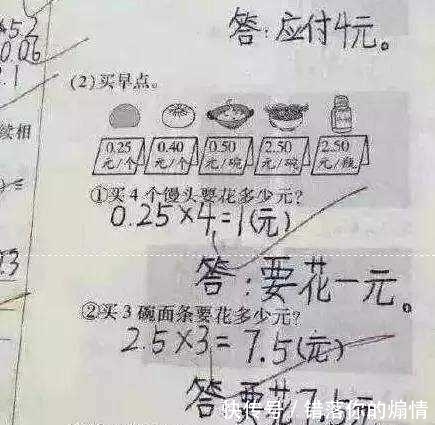 452
0.06
.1
答:应付4元。
(2)买早点。
续相
0.25 0.40 0.50 2.50 2.50
元/个 元/个 元/碗 元/碗 元/瓶
①买4个馒头要花多少元?
0.25×4=1(元)
答:要花一元。
②买3碗面条要花多少元?
2.5×3=7.5(元)
答要花7.5元
快传号/错落你的煽情